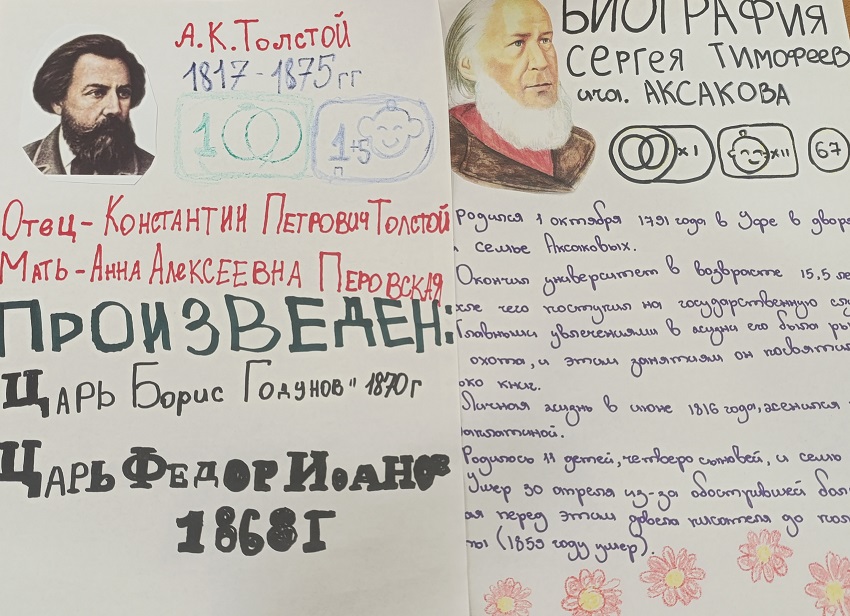 А.К.Толстой
1817-1875гг
1
1+5
п
Отец-Константин Петрович Толстой
Мать-Анна Алексеевна Перовская
Произведен:
Царь Борис Годунов" 1870г
Царь Федор Иоанов
1868г
БИОГРАФИЯ
СЕРГЕЯ ТИМОФЕЕВ
ича. АКСАКОВА
х1
х11
67
Родился 1 октября 1791 года в Уфе в двор
семье Аксаковых.
Окончил университет в возврасте 15,5 ле
сле чего поступил на государственную слу
Главными увлечениями в жизни его была ры
охота, и этим занятиям он посвятил
око книг.
Личная жизнь в июне 1816 года, женился
аплатиной.
Родилось 11 детей, четверо сыновей, и семь
Умер 30 апреля из-за обострившей бол
ая перед этим довела писателя до пол
ты (1859 году умер).